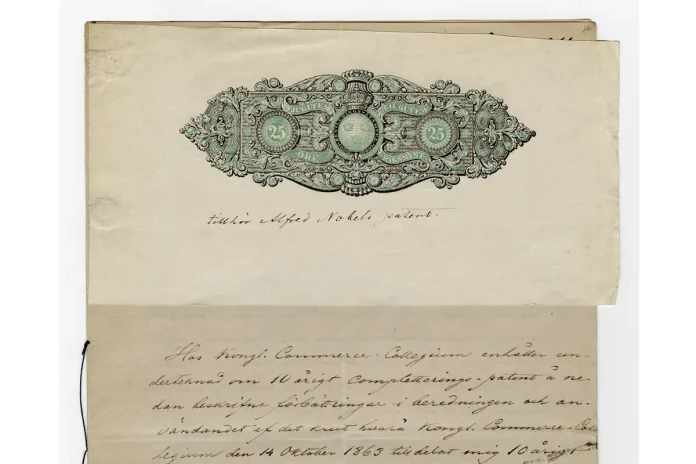 25
25
ÖRE
tillhör Alfred Nobels patent.
Hos Kongl. Commerce-Collegium anhåller un-
dertecknad om 10 årigt completterings-patent å ne-
dan beskrifne förbättringar i beredningen och an-
vändandet af det krut hvarå Kongl. Commerce-Col-
legium den 14 Oktober 1863 tilldelat mig 10 årigt